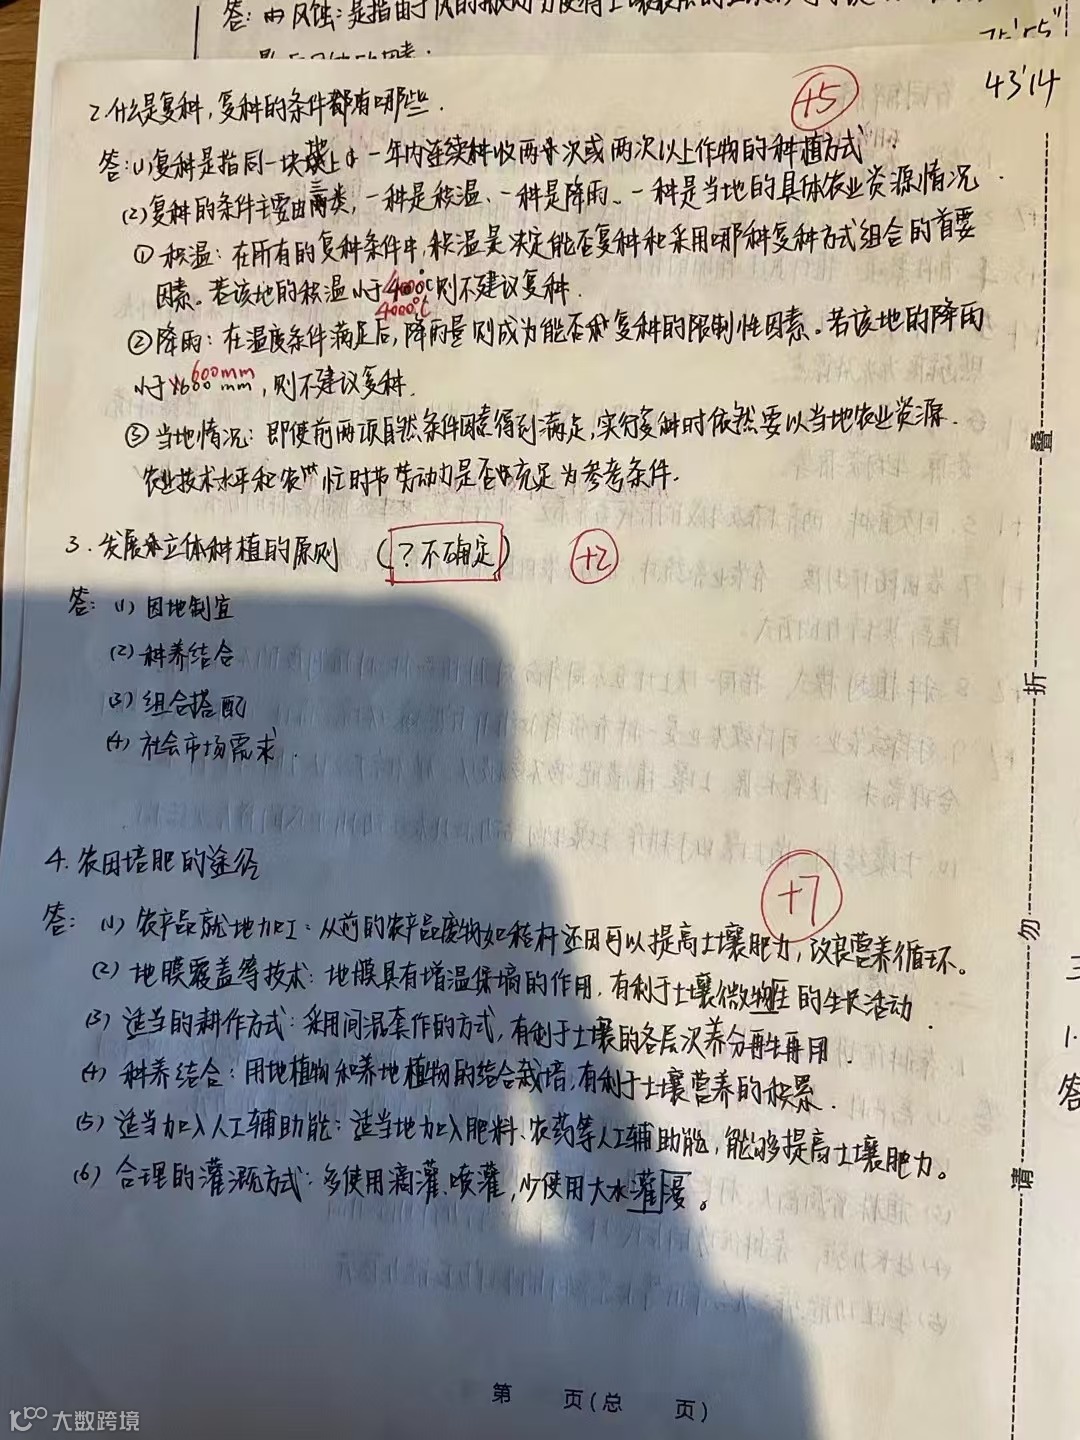 答:由风蚀:是指由于风的
75'55"
43'14
+5
2.什么是复种,复种的条件都有哪些.
答:(1)复种是指同一块 上 一年内连续种收两 次或两次以上作物的种植方式
(2)复种的条件主要由三类,一种是积温、一种是降雨、一种是当地的具体农业资源情况.
①积温:在所有的复种条件中,积温是决定能否复种和采用哪种复种方式组合的首要
因素。若该地的积温小于4000℃则不建议复种.
4000℃
②降雨:在温度条件满足后,降雨量则成为能否 复种的限制性因素。若该地的降雨
600mm
小于 600mm,则不建议复种.
③当地情况:即使前两项自然条件因素得到满足,实行复种时依然要以当地农业资源.
农业技术水平和农忙时节劳动力是否充足为参考条件.
3.发展立体种植的原则 (?不确定) +2
答:(1)因地制宜
(2)种养结合
(3)组合搭配
(4)社会市场需求.
4.农田培肥的途径
+7
答:(1)农产品就地加工:从前的农产品废物如秸杆还田可以提高土壤肥力,改良营养循环。
(2)地膜覆盖等技术:地膜具有增温保墒的作用,有利于土壤微生物的生长活动.
(3)适当的耕作方式:采用间混套作的方式,有利于土壤的各层次养分再生再用.
(4)种养结合:用地植物和养地植物的结合栽培,有利于土壤营养的积累.
(5)适当加入人工辅助能:适当地加入肥料、农药等人工辅助能,能够提高土壤肥力。
(6)合理的灌溉方式:多使用滴灌、喷灌,少使用大水灌漫。
请 勿 折 叠
三
1.
答
第 页(总 页)
大数跨境